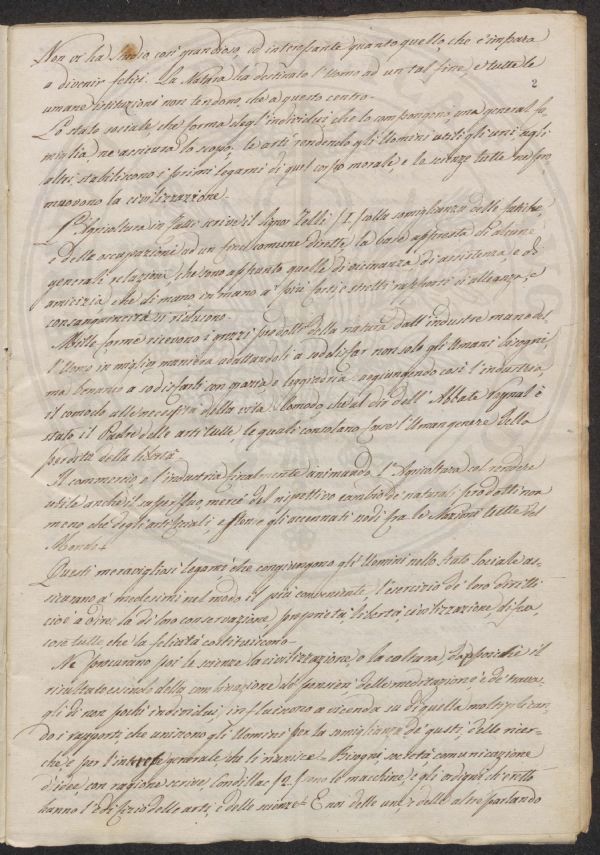 Non vi ha studio così grandioso, ed interessante quanto quello che c'impara
a divenir felici. La Natura ha destinato l'Uomo ad un tal fine, e tutte le
2
umane istituzioni non tendono, che a questo centro.
Lo stato sociale, che forma degl'individui che lo compongono una general fa,
miglia, ne assicura lo scopo; le arti rendendo gli Uomini utili gli uni agli
altri, stabiliscono i primi legami di quel corpo morale, e le scienze tutte ne pro,
muovono la civilizzazione.
L'Agricoltura in fatti scrive il Signor Zelli, f 1. sulla somiglianza delle fatiche,
e delle occupazioni ad un fine comune dirette, la base appresta di alcune
generali relazioni, che sono appunto quelle di vicinanza di assistenza, e di
amicizia che di mano in mano a' più forti e stretti rapporti di alleanza, e
consanguineità si riducono.
Mille forme ricevono i grezzi prodotti della natura dall'industre mano del,
l'Uomo in miglior maniera adattandoli a sodisfar non solo gli Umani bisogni,
ma benanco a sodisfarli con grazia e leggiadria, aggiungendo così l'industria
il comodo alle necessità della vita. Comodo, che al dir dell'Abbate Raynal è
stato il Padre delle arti tutte, le quali consolano forse l'Uman genere della
perdita della libertà.
Il commercio, e l'industria finalmente animando l'Agricoltura col rendere
utile anche il superfluo, mercè del rispettivo cambio de' naturali prodotti non
meno che degli artificiali, estende gli accennati nodi fra le Nazioni tutte del
Mondo.
Questi meravigliosi legami, che congiungono gli Uomini nello stato sociale as,
sicurano a' medesimi nel modo il più conveniente, l'esercizio de' loro diritti
cioè a dire la di loro conservazione, proprietà, libertà, civilizzazione, difesa,
cose tutte, che la felicità costituiscono.
Ne procurano poi le scienze la civilizzazione, o la coltura, dappoichè il
risultato essendo della combinazione de' pensieri delle meditazioni, e de' trava,
gli di non pochi individui, influiscono a vicenda su di quella moltiplican,
do i rapporti che uniscono gli Uomini per la somiglianza de' gusti, delle ricer,
che, e per l'interesse generale, che li riunisce. Bisogni, società comunicazione
d'idee, con ragione scrive Condillac f 2. sono le machine, e gli ordegni che
hanno l'edifizio delle arti, e delle scienze. E noi delle une, e delle altre parlando